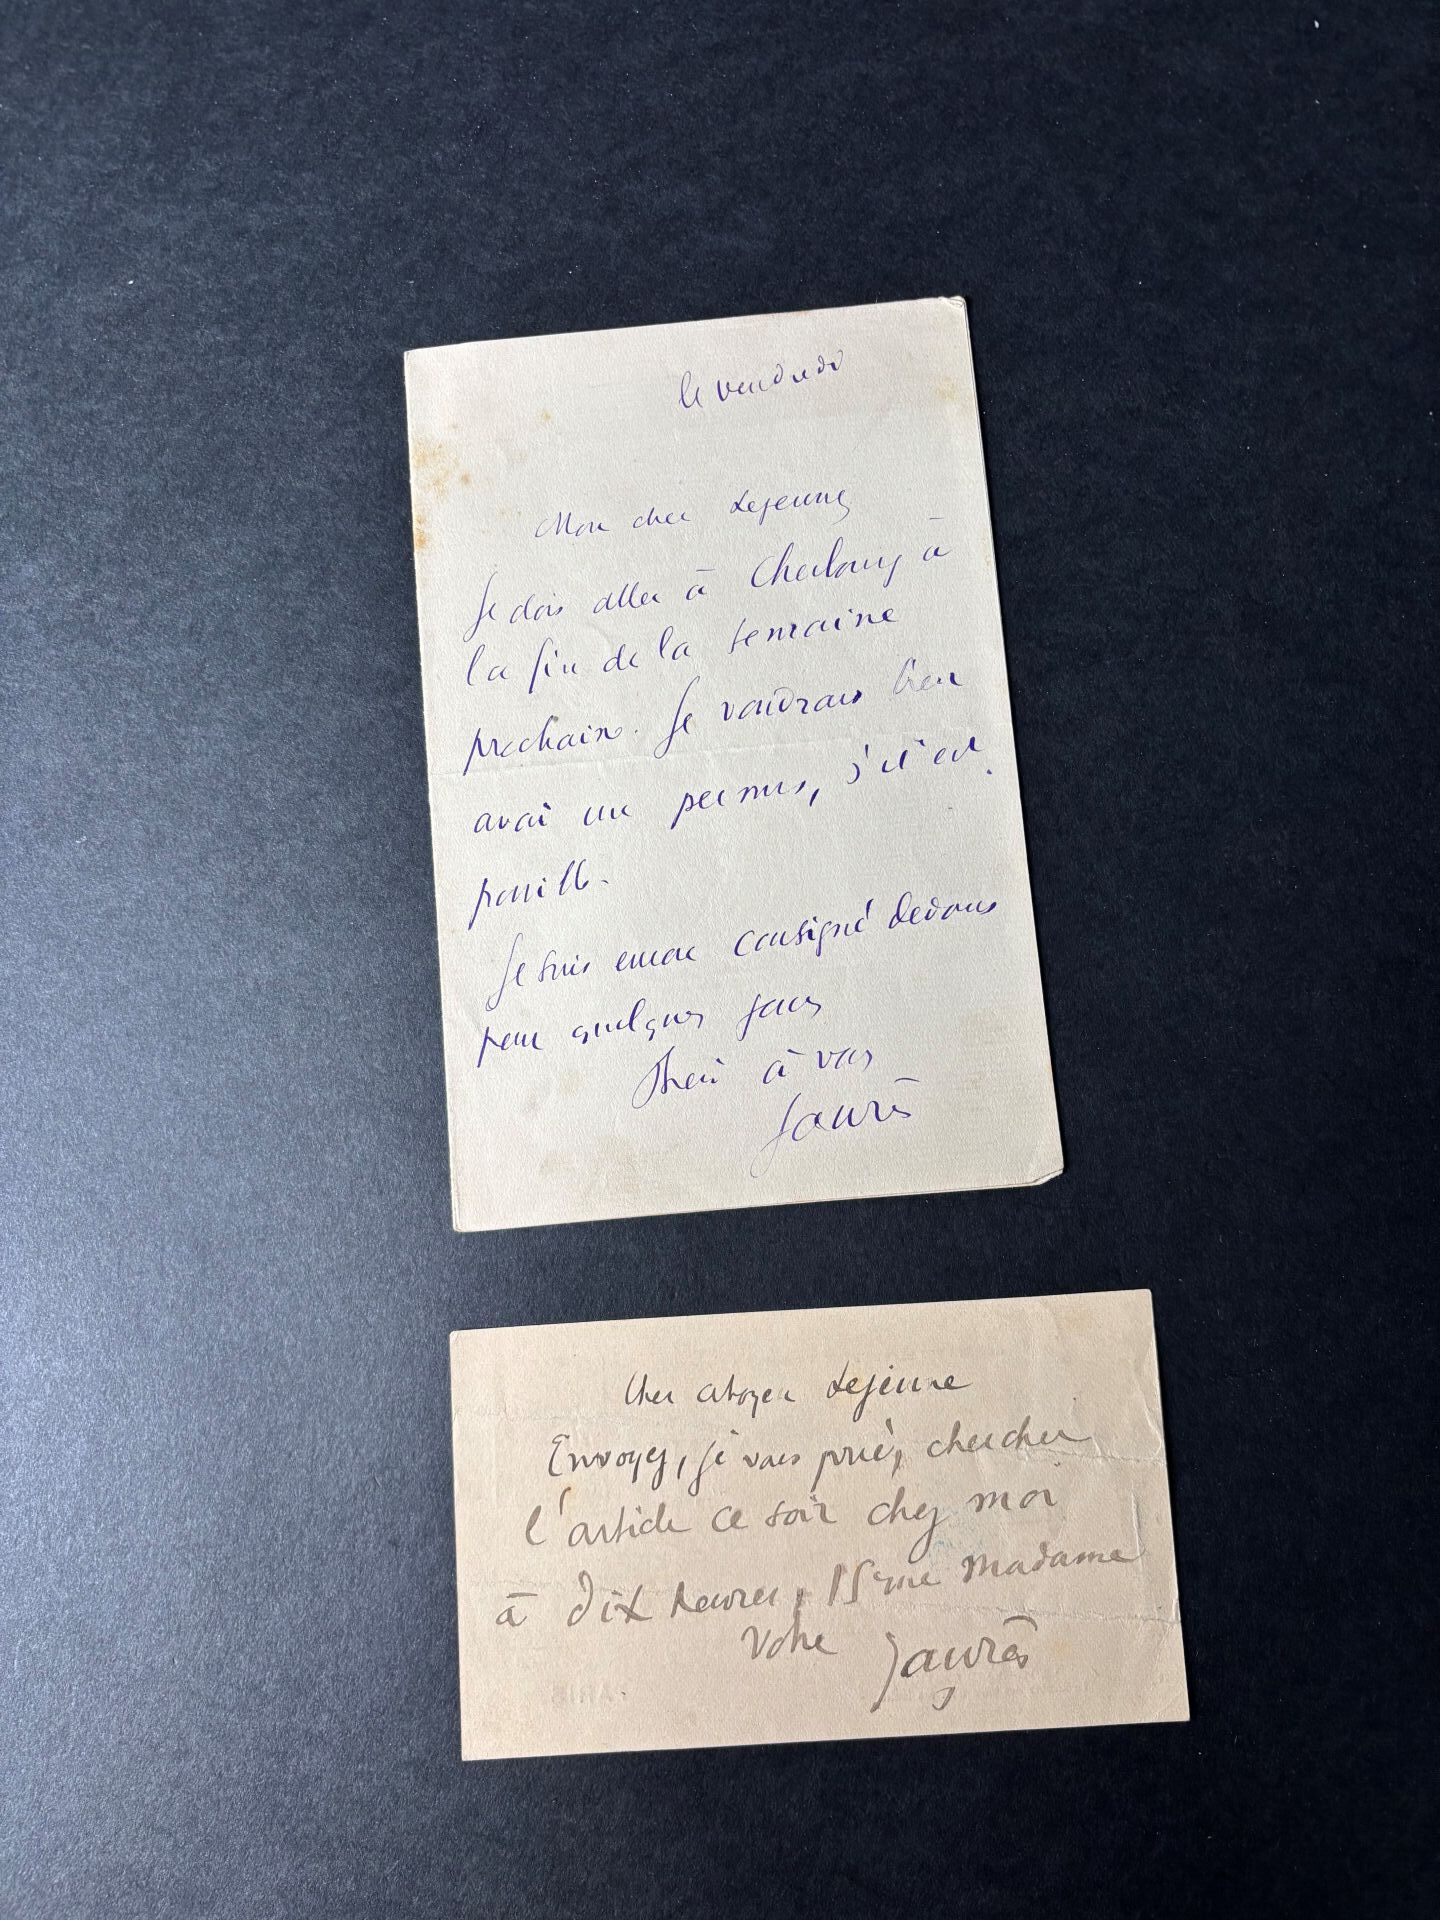 le vendredi
Mon cher Lejeune
Je dois aller à Cherbourg à
la fin de la semaine
prochaine. Je voudrais bien
avoir un permis, s'il est
possible.
Je suis encore consigné dedans
pour quelques jours
Bien à vous
Jaurès
Cher citoyen Lejeune
Envoyez, je vous prie, chercher
l'article ce soir chez moi
à dix heures, 15 rue Madame
Votre Jaurès